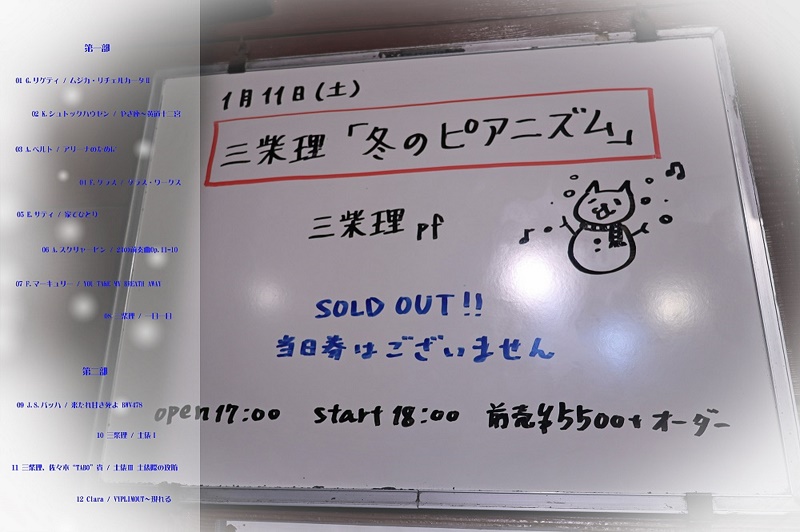 第一部
01 G.リゲティ / ムジカ・リチェルカータⅡ
02 K.シュトックハウゼン / やぎ座〜黄道十二宮
03 A.ペルト / アリーナのために
04 P.グラス / グラス・ワークス
05 E.サティ / 家でひとり
06 A.スクリャービン / 24の前奏曲Op.11-10
07 F.マーキュリー / YOU TAKE MY BREATH AWAY
08 三柴理 / 一日一日
第二部
09 J.S.バッハ / 来たれ甘き死よ BWV478
10 三柴理 / 土俵Ⅰ
11 三柴理、佐々木“TABO”貴 / 土俵Ⅲ 土俵際の攻防
12 Clara / VYPLINOUT〜現れる
1月11日(土)
三柴理「冬のピアニズム」
三柴理 pf
SOLD OUT!!
当日券はございません
open 17:00 start 18:00 前売¥5500+オーダー